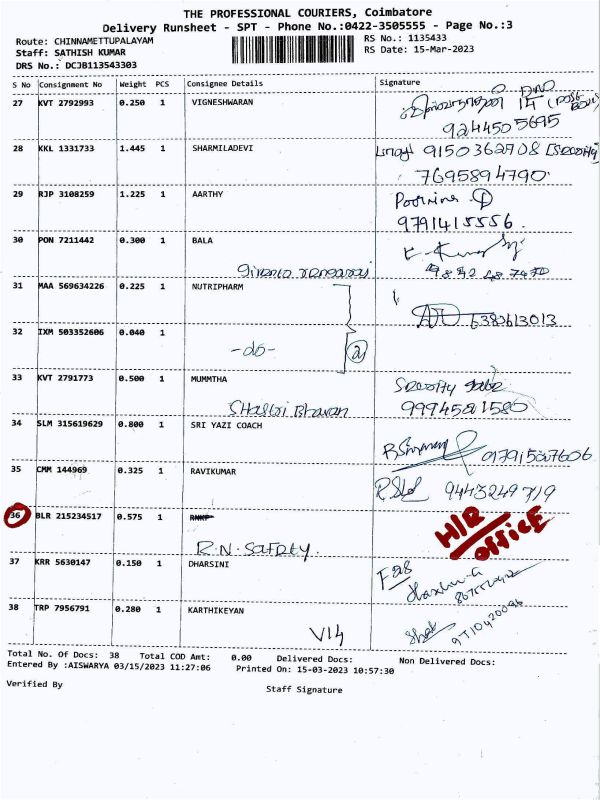 THE PROFESSIONAL COURIERS, Coimbatore
Delivery Runsheet - SPT - Phone No.:0422-3505555 - Page No.:3
Route: CHINNAMETTUPALAYAM RS No.: 1135433
Staff: SATHISH KUMAR RS Date: 15-Mar-2023
DRS No.: DCJB113543303
S No Consignment No Weight PCS Consignee Details Signature
27 KVT 2792993 0.250 1 VIGNESHWARAN
9244505695
28 KKL 1331733 1.445 1 SHARMILADEVI 9150362708 [Security]
7695894790
29 RJP 3108259 1.225 1 AARTHY Poornima
9791415556
30 PON 7211442 0.300 1 BALA
31 MAA 569634226 0.225 1 NUTRIPHARM
6382613013
32 IXM 503352606 0.040 1
-do- 2
33 KVT 2791773 0.500 1 MUMMTHA Security
Shastri Bhavan 9994581580
34 SLM 315619629 0.800 1 SRI YAZI COACH
35 CMM 144969 0.325 1 RAVIKUMAR 9443249719
36 BLR 215234517 0.575 1 H/R
OFFICE
R.N. Safety.
37 KRR 5630147 0.150 1 DHARSINI
38 TRP 7956791 0.280 1 KARTHIKEYAN
V14 9710420096
Total No. Of Docs: 38 Total COD Amt: 0.00 Delivered Docs: Non Delivered Docs:
Entered By :AISWARYA 03/15/2023 11:27:06 Printed On: 15-03-2023 10:57:30
Verified By Staff Signature